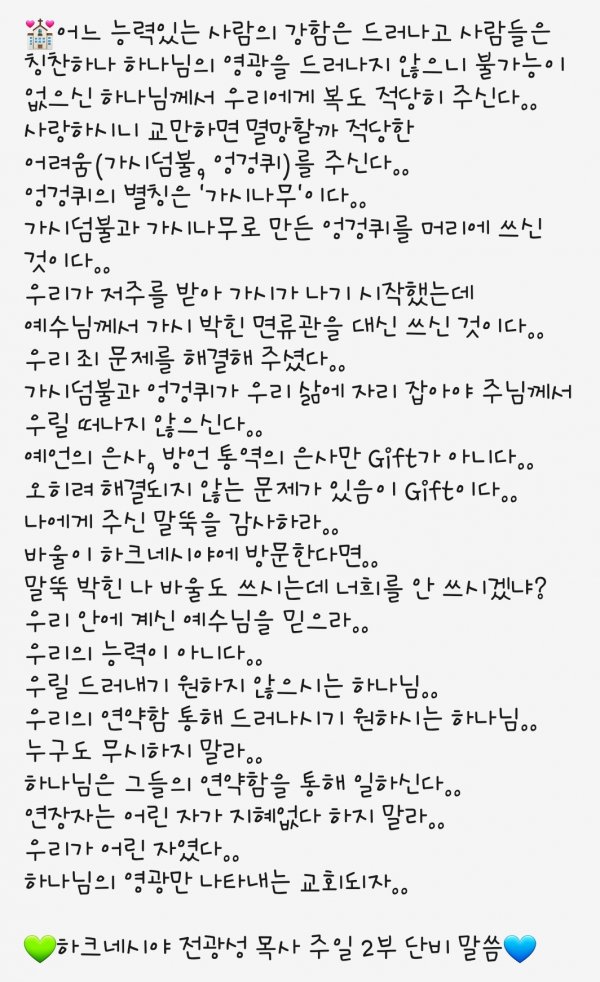 💒어느 능력있는 사람의 강함은 드러나고 사람들은
칭찬하나 하나님의 영광을 드러나지 않으니 불가능이
없으신 하나님께서 우리에게 복도 적당히 주신다。。
사랑하시니 교만하면 멸망할까 적당한
어려움(가시덤불, 엉겅퀴)를 주신다。。
엉겅퀴의 별칭은 '가시나무'이다。。
가시덤불과 가시나무로 만든 엉겅퀴를 머리에 쓰신
것이다。。
우리가 저주를 받아 가시가 나기 시작했는데
예수님께서 가시 박힌 면류관을 대신 쓰신 것이다。。
우리 죄 문제를 해결해 주셨다。。
가시덤불과 엉겅퀴가 우리 삶에 자리 잡아야 주님께서
우릴 떠나지 않으신다。。
예언의 은사, 방언 통역의 은사만 Gift가 아니다。。
오히려 해결되지 않는 문제가 있음이 Gift이다。。
나에게 주신 말뚝을 감사하라。。
바울이 하크네시야에 방문한다면。。
말뚝 박힌 나 바울도 쓰시는데 너희를 안 쓰시겠냐?
우리 안에 계신 예수님을 믿으라。。
우리의 능력이 아니다。。
우릴 드러내기 원하지 않으시는 하나님。。
우리의 연약함 통해 드러나시기 원하시는 하나님。。
누구도 무시하지 말라。。
하나님은 그들의 연약함을 통해 일하신다。。
연장자는 어린 자가 지혜없다 하지 말라。。
우리가 어린 자였다。。
하나님의 영광만 나타내는 교회되자。。
💚하크네시야 전광성 목사 주일 2부 단비 말씀💙